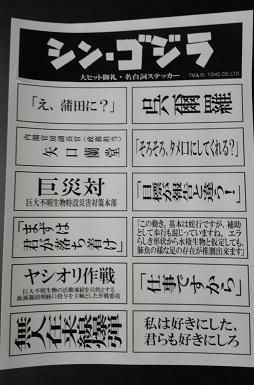 シン・ゴジラ
大ヒット御礼・名台詞ステッカー
TM&© TOHO CO.,LTD.
「え、蒲田に?」
呉爾羅
内閣官房副長官(政務担当)
矢口蘭堂
「そろそろ、タメ口にしてくれる?」
巨災対
巨大不明生物特設災害対策本部
「目標が報告と違う!」
「まずは
君が落ち着け」
「この動き、基本は蛇行ですが、補助
として歩行も混じっていますね。エラ
らしき形状から水棲生物と仮定しても、
肺魚の様な足の存在が推測出来ます」
ヤシオリ作戦
巨大不明生物の活動凍結を目的とする
血液凝固剤経口投与を主軸とした作戦要項
「仕事ですから」
無人在来線爆弾
私は好きにした、
君らも好きにしろ